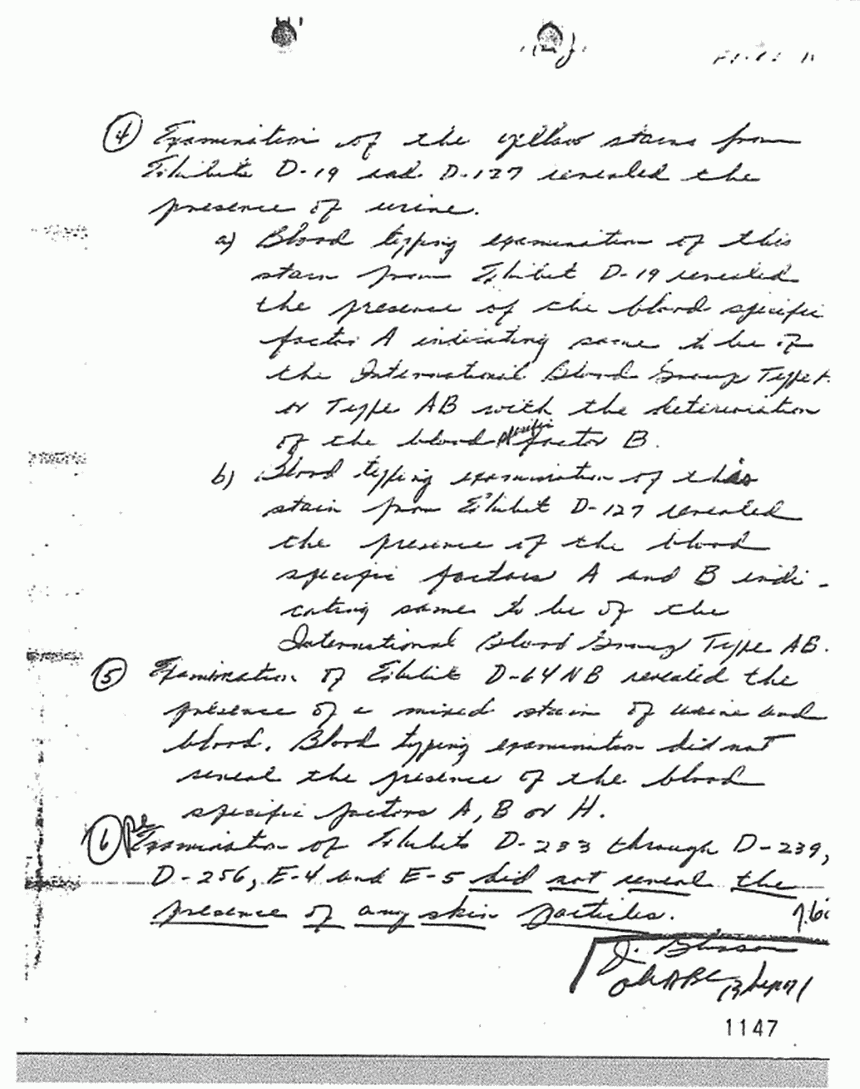 ④ Examination of the yellow stains from
Exhibits D-19 and D-127 revealed the
presence of urine.
a) Blood typing examination of this
stain from Exhibit D-19 revealed
the presence of the blood specific
factor A indicating same to be of
the International Blood Group Type A
or Type AB with the deterioration
of the blood specific factor B.
b) Blood typing examination of this
stain from Exhibit D-127 revealed
the presence of the blood
specific factors A and B indi-
cating same to be of the
International Blood Group Type AB.
⑤ Examination of Exhibit D-64NB revealed the
presence of a mixed stain of urine and
blood. Blood typing examination did not
reveal the presence of the blood
specific factors A, B or H.
⑥ Examination of Exhibits D-233 through D-239,
D-256, E-4 and E-5 did not reveal the
presence of any skin particles.
1147